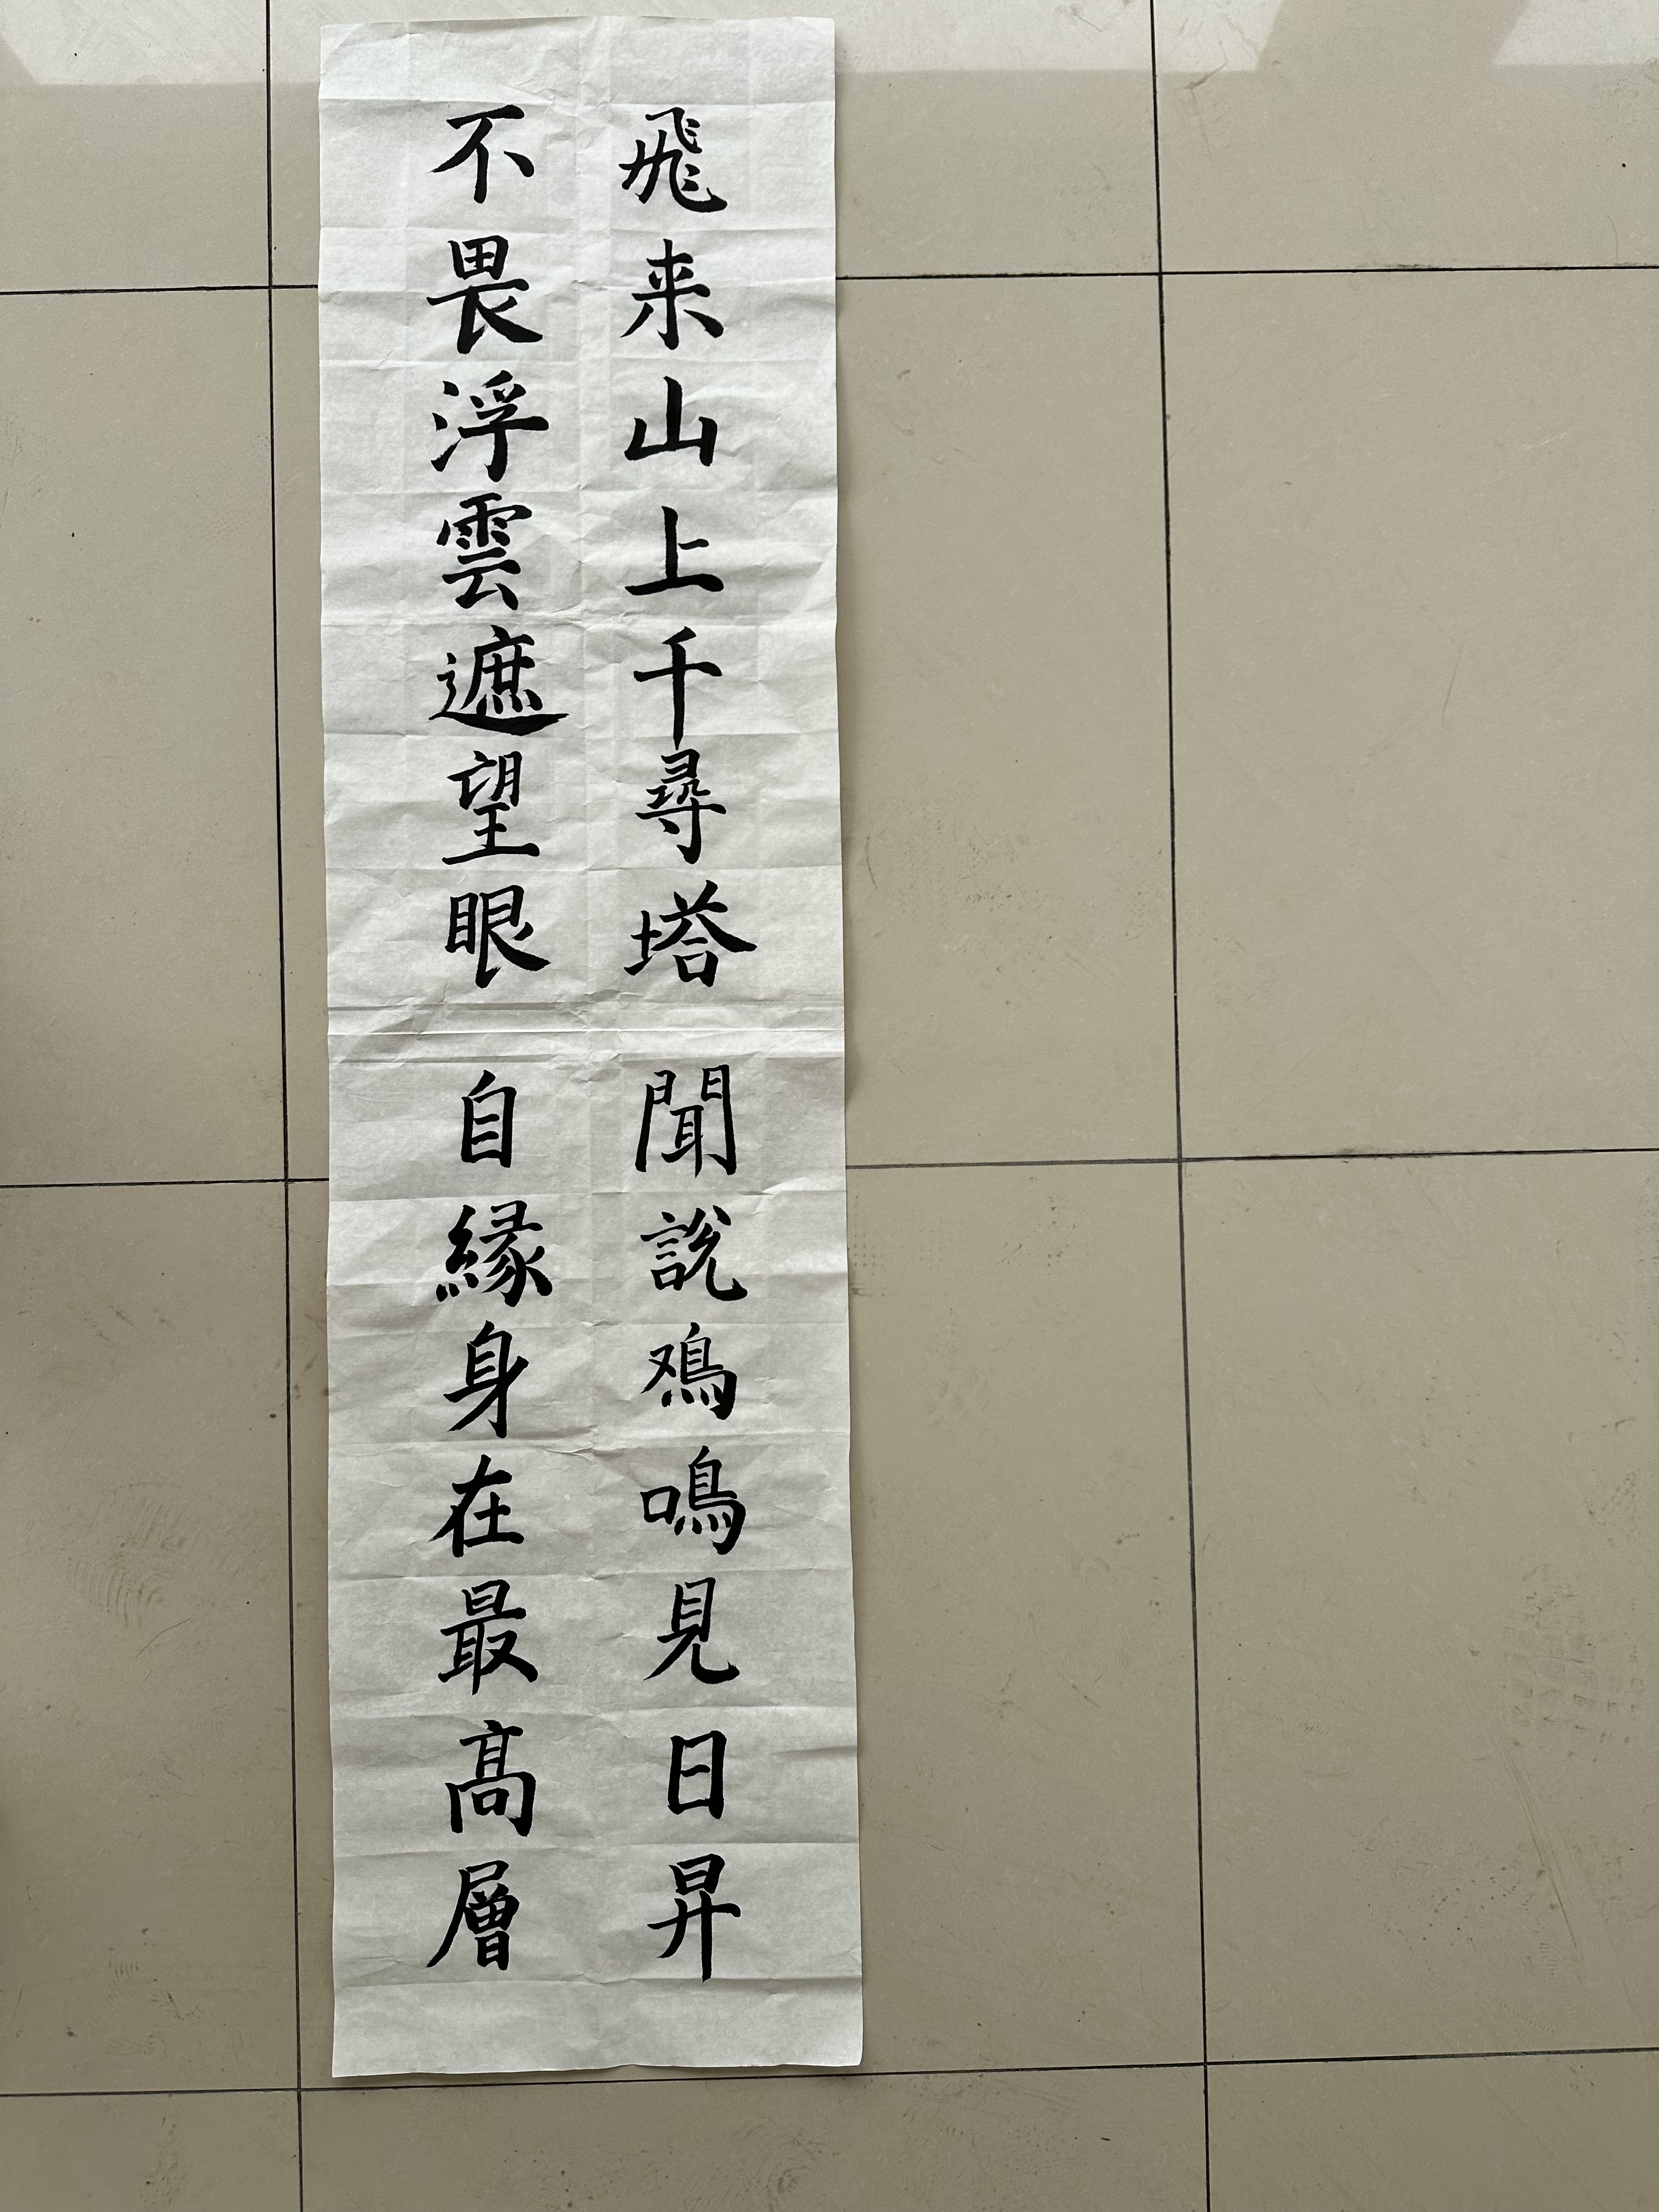 飛来山上千尋塔聞說鳮鳴見日昇
不畏浮雲遮望眼自縁身在最高層